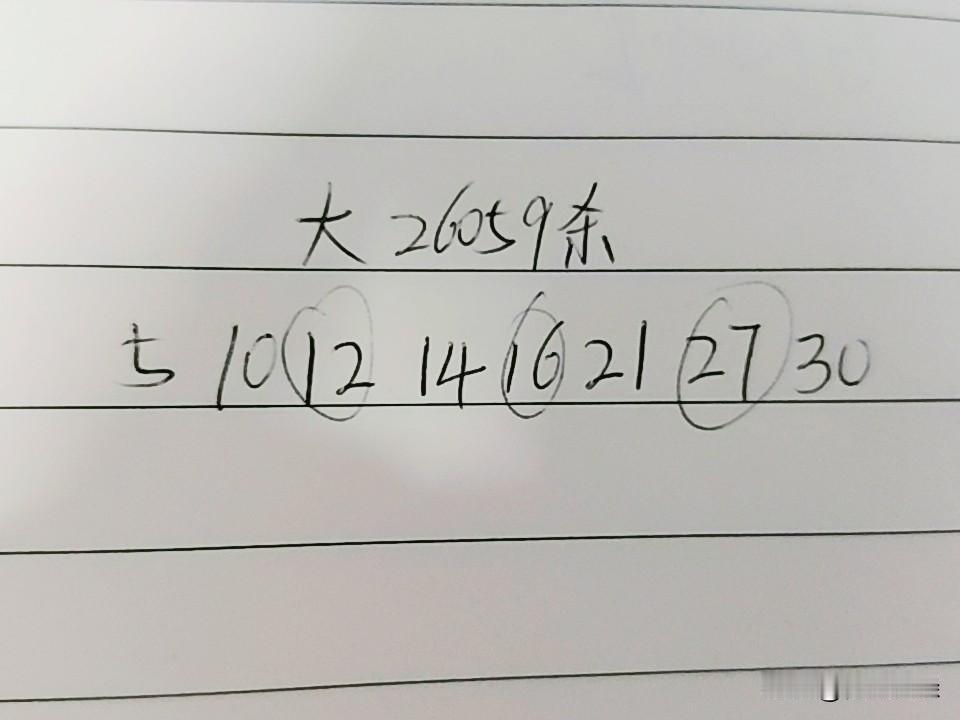 大26059杀
5 10 12 14 16 21 27 30